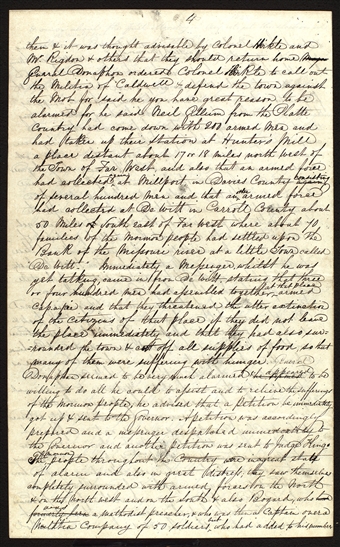 4
them & it was thought adviseable by Colonel Hinkle and
Mr Rigdon & others that they should return home
Genrl Donaphon ordered Colonel Hinkle to call out
the Militia of Caldwell & defend the town against
the Mob for said he you have great reason to be
alarmed for he said Neil Gillum from the Platte
Country had come down with 200 armed Men and
had taken up their Station at Hunters Mill
a place distant about 17 or 18 miles north west of
the Town of Far West, and also that an armed force
had collected at Millport in Davies County consisting
of several hundred Men and that another armed force
had collected at De Witt in Carroll County about
50 Miles south east of Far West where about 70
families of the Mormon people had settled upon the
Bank of the Missouri river at a little Town called
De Witt. Immediately a Messenger whilst he was
yet talking came in from De Witt, stating that three
or four hundred men had assembled together at that place armed
cap a pie and that they threatened the utter extinction
of the citizens of that place if they did not leave
the place immediately and that they had also sur-
rounded the town & cut off all supplies of food so that
many of them were suffering with hunger. General
Donaphon seemed to be very much alarmed & to be
willing to do all he could to assist and to relieve the sufferings
of the Mormon people, he advised that a Petition be immediately
got up & sent to the Governor. A petition was accordingly
prepared and a messenger despatched immediately to
the Governor and another petition was sent to Judge King.
The people throughout the Country were in great state
of alarm and also in great distress, they saw themselves
completely surrounded with armed forces on the North
& on the North west and on the South & also Bogard, who
was a Methodist preacher, & who was then a Captain over a
Militia Company of 50 soldiers but who had added to his number